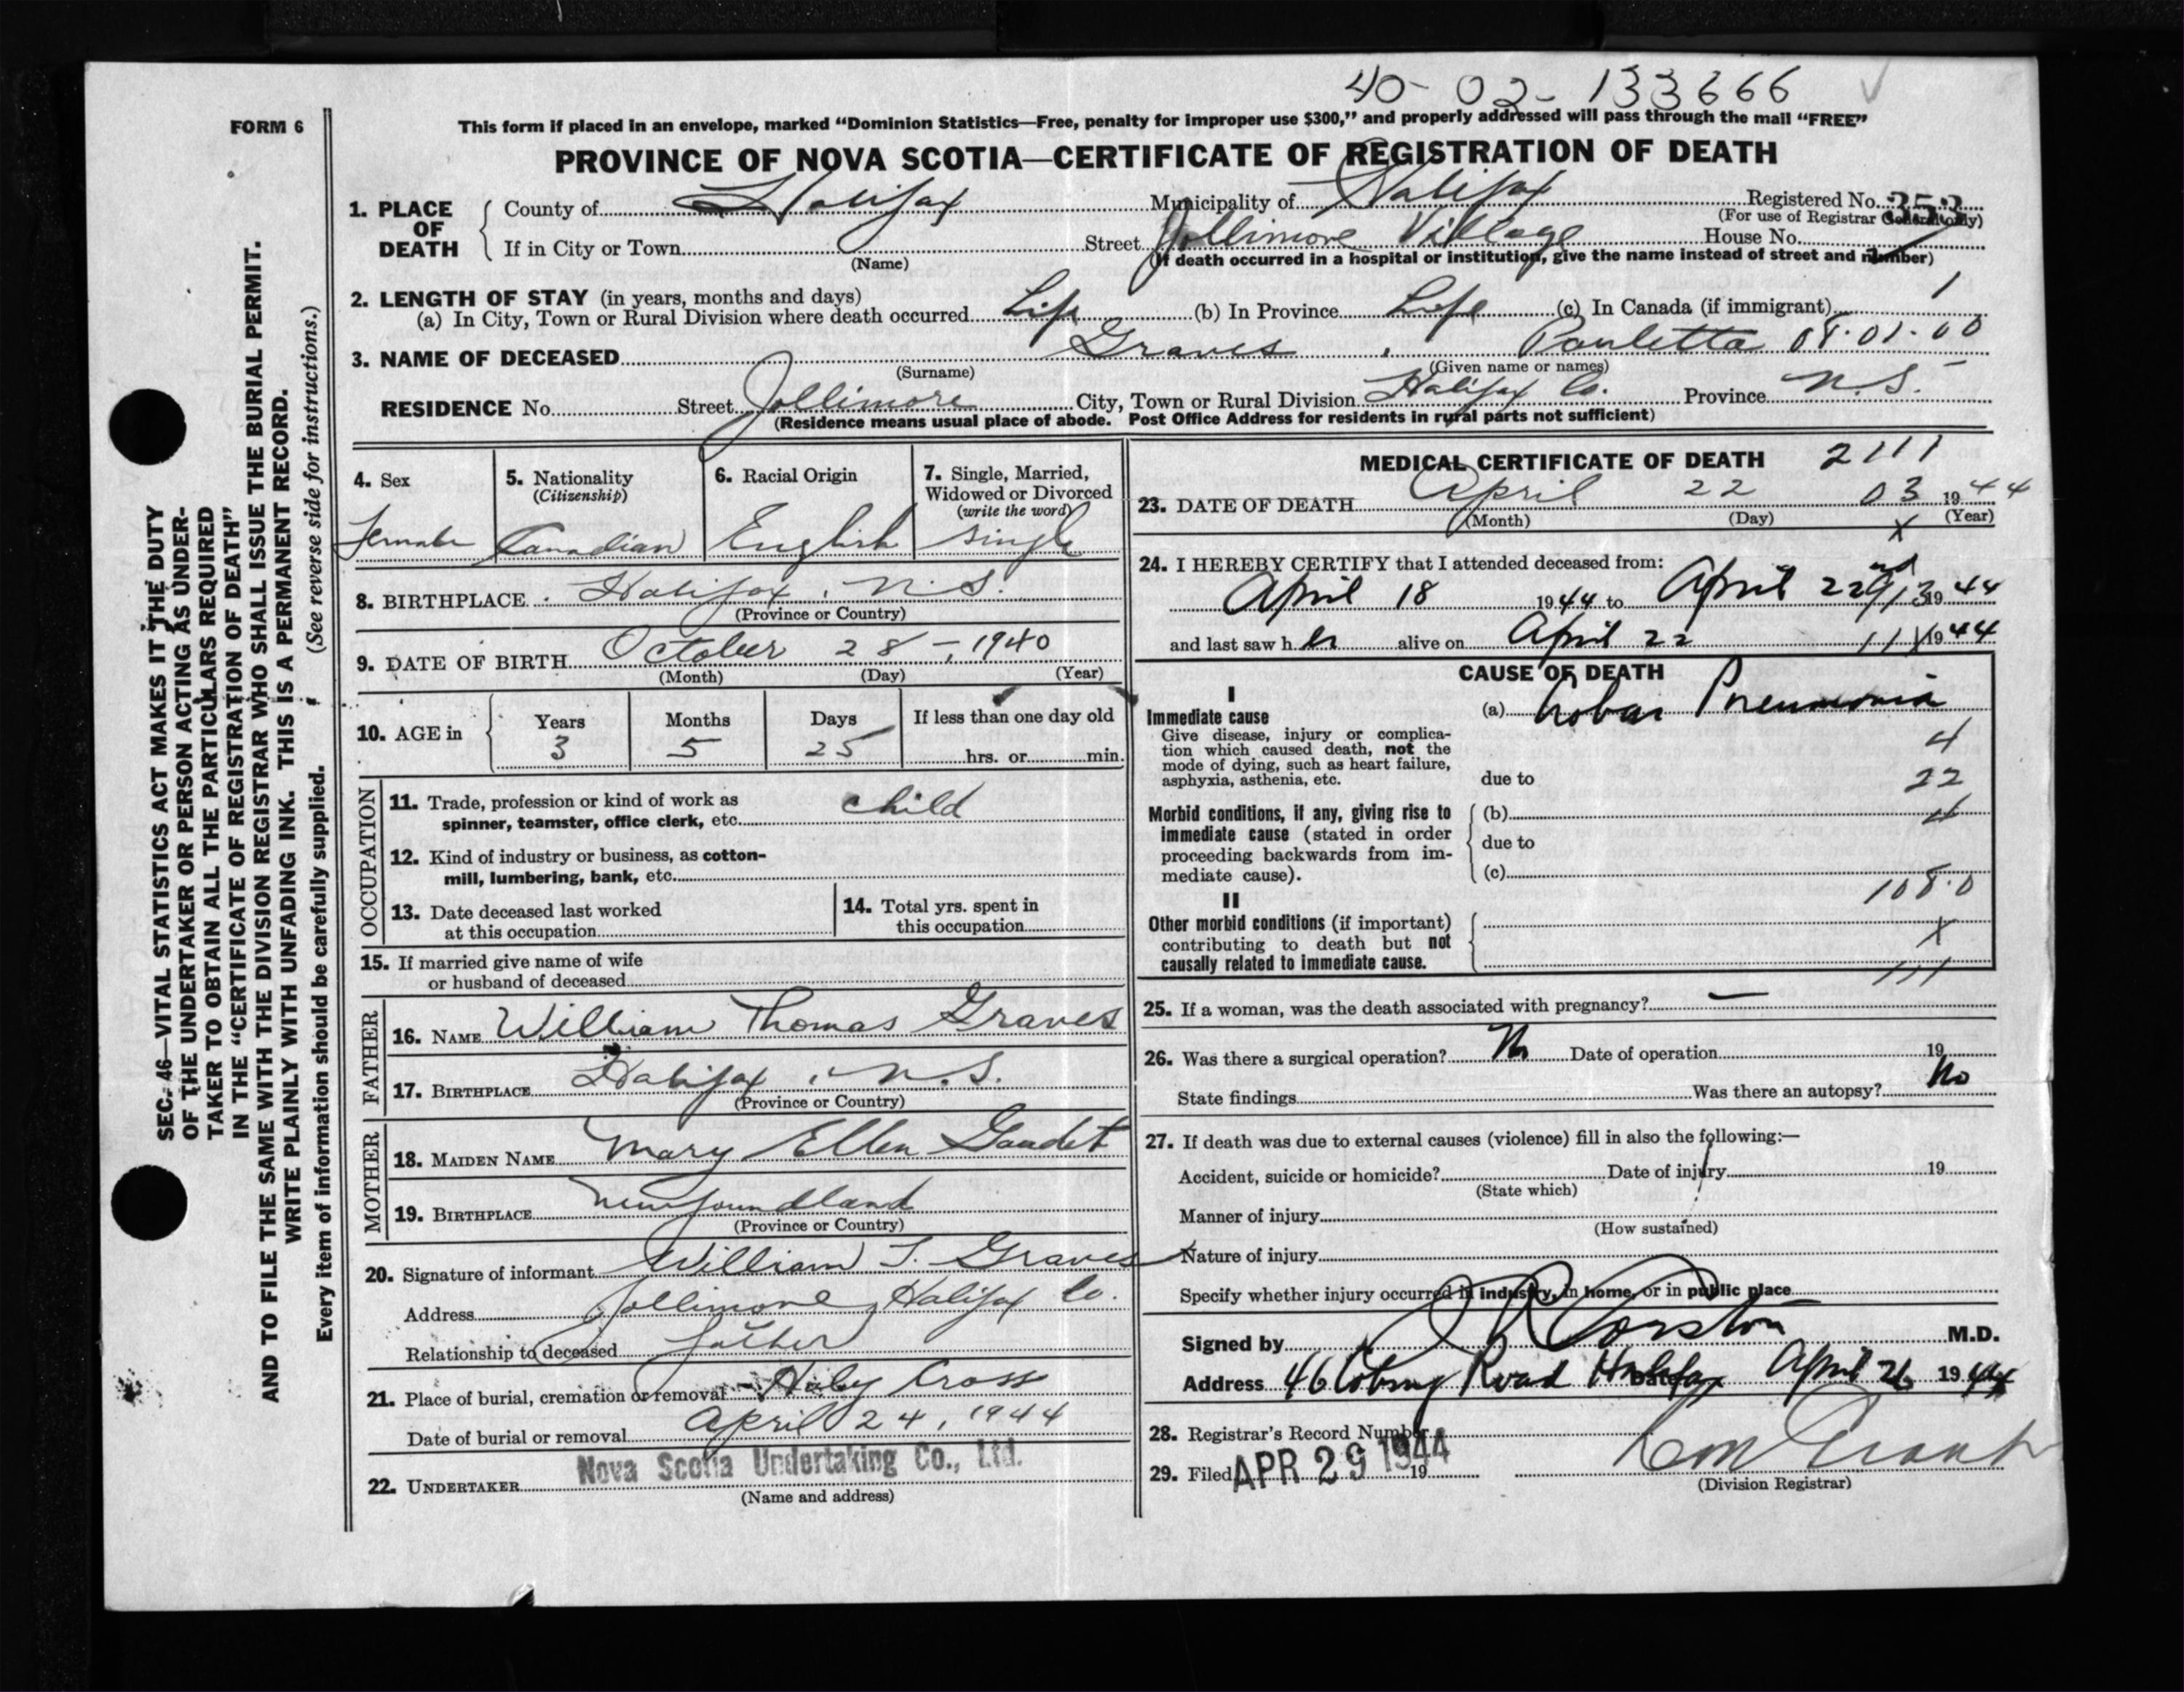 40-02-133666
FORM 6
This form if placed in an envelope, marked “Dominion Statistics—Free, penalty for improper use $300,” and properly addressed will pass through the mail “FREE”
PROVINCE OF NOVA SCOTIA—CERTIFICATE OF REGISTRATION OF DEATH
1. PLACE OF DEATH County of Halifax Municipality of Halifax Registered No. 353
(For use of Registrar General only)
If in City or Town Street Jollimore Village House No.
(Name) (If death occurred in a hospital or institution, give the name instead of street and number)
2. LENGTH OF STAY (in years, months and days)
(a) In City, Town or Rural Division where death occurred Life (b) In Province Life (c) In Canada (if immigrant) 1
3. NAME OF DECEASED Graves, Pauletta 08.01.00
(Surname) (Given name or names)
RESIDENCE No. Street Jollimore City, Town or Rural Division Halifax Co. Province N.S.
(Residence means usual place of abode. Post Office Address for residents in rural parts not sufficient)
4. Sex
Female
5. Nationality
(Citizenship)
Canadian
6. Racial Origin
English
7. Single, Married,
Widowed or Divorced
(write the word)
single
8. BIRTHPLACE Halifax, N.S.
(Province or Country)
9. DATE OF BIRTH October 28-, 1940
(Month) (Day) (Year)
10. AGE in Years Months Days If less than one day old
3 5 25 hrs. or min.
OCCUPATION
11. Trade, profession or kind of work as
spinner, teamster, office clerk, etc. child
12. Kind of industry or business, as cotton-
mill, lumbering, bank, etc.
13. Date deceased last worked
at this occupation
14. Total yrs. spent in
this occupation
15. If married give name of wife
or husband of deceased
FATHER
16. NAME William Thomas Graves
17. BIRTHPLACE Halifax, N.S.
(Province or Country)
MOTHER
18. MAIDEN NAME Mary Ellen Gaudet
19. BIRTHPLACE Newfoundland
(Province or Country)
20. Signature of informant William T. Graves
Address Jollimore, Halifax Co.
Relationship to deceased father
21. Place of burial, cremation or removal - Holy Cross
Date of burial or removal April 24, 1944
22. UNDERTAKER Nova Scotia Undertaking Co., Ltd.
(Name and address)
MEDICAL CERTIFICATE OF DEATH 2111
23. DATE OF DEATH April 22 03 1944
(Month) (Day) (Year)
X
24. I HEREBY CERTIFY that I attended deceased from:
April 18 1944 to April 22nd 1944
and last saw her alive on April 22 1944
CAUSE OF DEATH
I
Immediate cause
Give disease, injury or complica-
tion which caused death, not the
mode of dying, such as heart failure,
asphyxia, asthenia, etc.
(a) Lobar Pneumonia
4
due to 22
Morbid conditions, if any, giving rise to
immediate cause (stated in order
proceeding backwards from im-
mediate cause).
(b) 4
due to
(c)
108.0
II
Other morbid conditions (if important)
contributing to death but not
causally related to immediate cause.
X
111
25. If a woman, was the death associated with pregnancy? —
26. Was there a surgical operation? No Date of operation 19
State findings Was there an autopsy? No
27. If death was due to external causes (violence) fill in also the following:—
Accident, suicide or homicide? Date of injury 19
(State which)
Manner of injury
(How sustained)
Nature of injury
Specify whether injury occurred in industry, in home, or in public place
Signed by Corston M.D.
Address 46 Coburg Road Halifax Date April 26 1944
28. Registrar's Record Number
29. Filed APR 29 1944 19
(Division Registrar)
SEC. 46—VITAL STATISTICS ACT MAKES IT THE DUTY
OF THE UNDERTAKER OR PERSON ACTING AS UNDER-
TAKER TO OBTAIN ALL THE PARTICULARS REQUIRED
IN THE “CERTIFICATE OF REGISTRATION OF DEATH”
AND TO FILE THE SAME WITH THE DIVISION REGISTRAR WHO SHALL ISSUE THE BURIAL PERMIT.
WRITE PLAINLY WITH UNFADING INK. THIS IS A PERMANENT RECORD.
Every item of information should be carefully supplied. (See reverse side for instructions.)